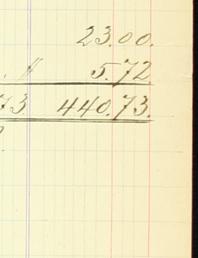 23.00.
. " 5.72.
73 440.73.